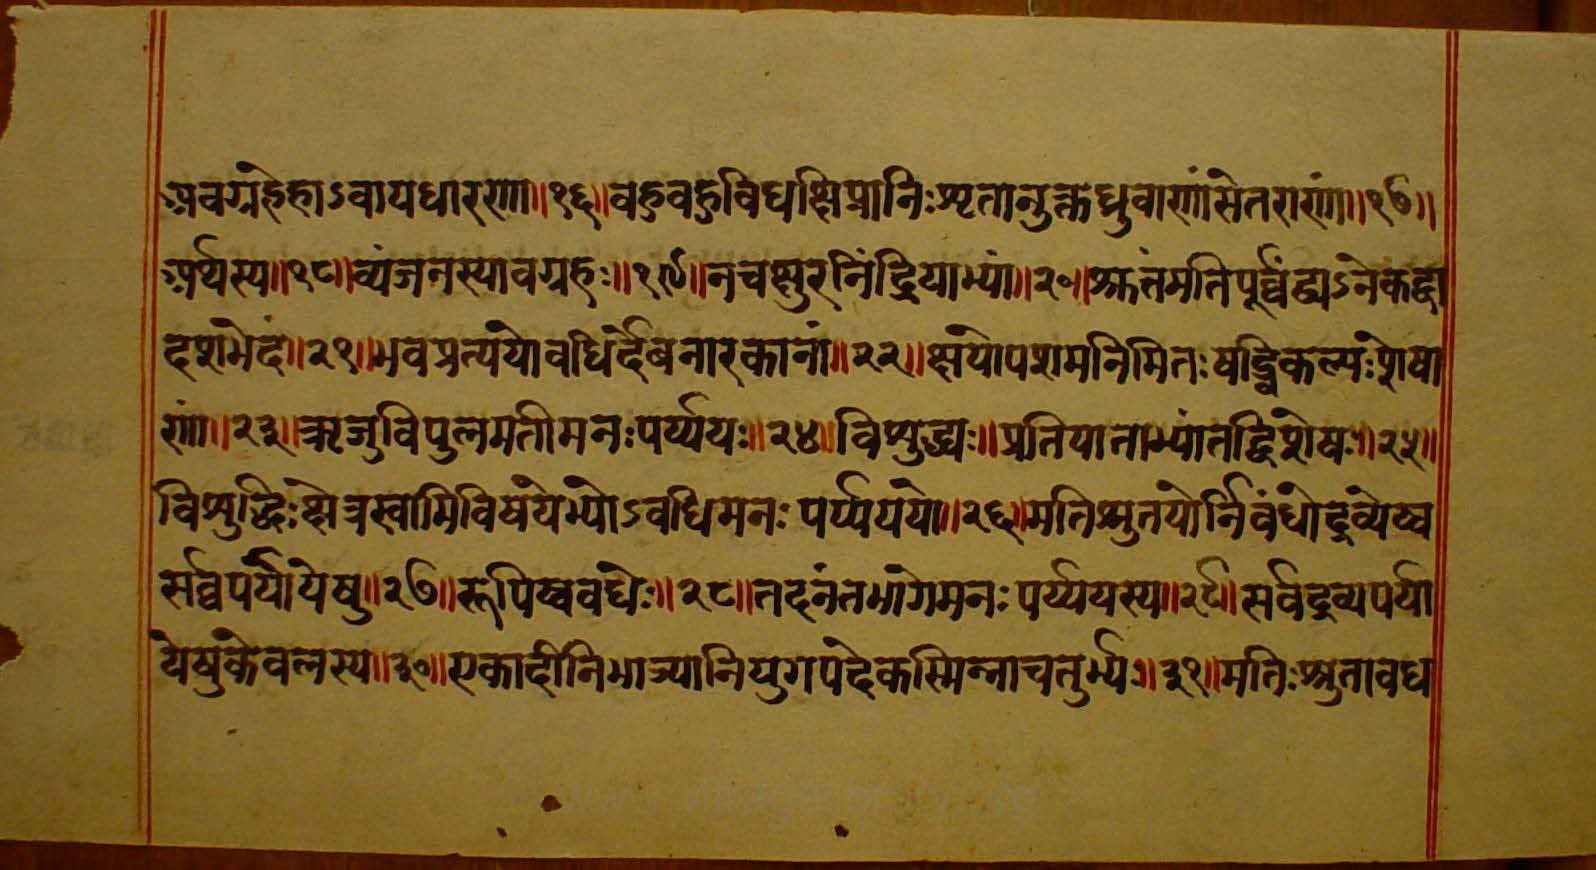 अवग्रहेहाऽवायधारणा॥१६॥वहुवहुविधक्षिप्रानिःसृतानुक्तध्रुवाणांसेतराणां॥१७॥
अर्थस्य॥१८॥व्यंजनस्यावग्रहः॥१९॥नचक्षुरनिंद्रियाभ्यां॥२०॥श्रुतंमतिपूर्व्वंद्व्यऽनेकद्वा
दशभेदं॥२१॥भवप्रत्ययोवधिर्देवनारकानां॥२२॥क्षयोपशमनिमितःषड्विकल्पःशेषा
णां॥२३॥ऋजुविपुलमतीमनःपर्य्ययः॥२४॥विशुद्ध्यः॥प्रतिपाताभ्यांतद्विशेषः॥२५॥
विशुद्धिःक्षेत्रस्वामिविषयेभ्योऽवधिमनः पर्य्यययो॥२६॥मतिश्रुतयोर्निवंधोद्रव्येष्व
सर्व्वपर्यायेषु॥२७॥रूपिष्ववधेः॥२८॥तदनंतभागेमनः पर्य्ययस्य॥२९॥सर्वद्रव्यपर्या
येषुकेवलस्य॥३०॥एकादीनिभाज्यानियुगपदेकस्मिन्नाचतुर्भ्यः॥३१॥मतिःश्रुतावध